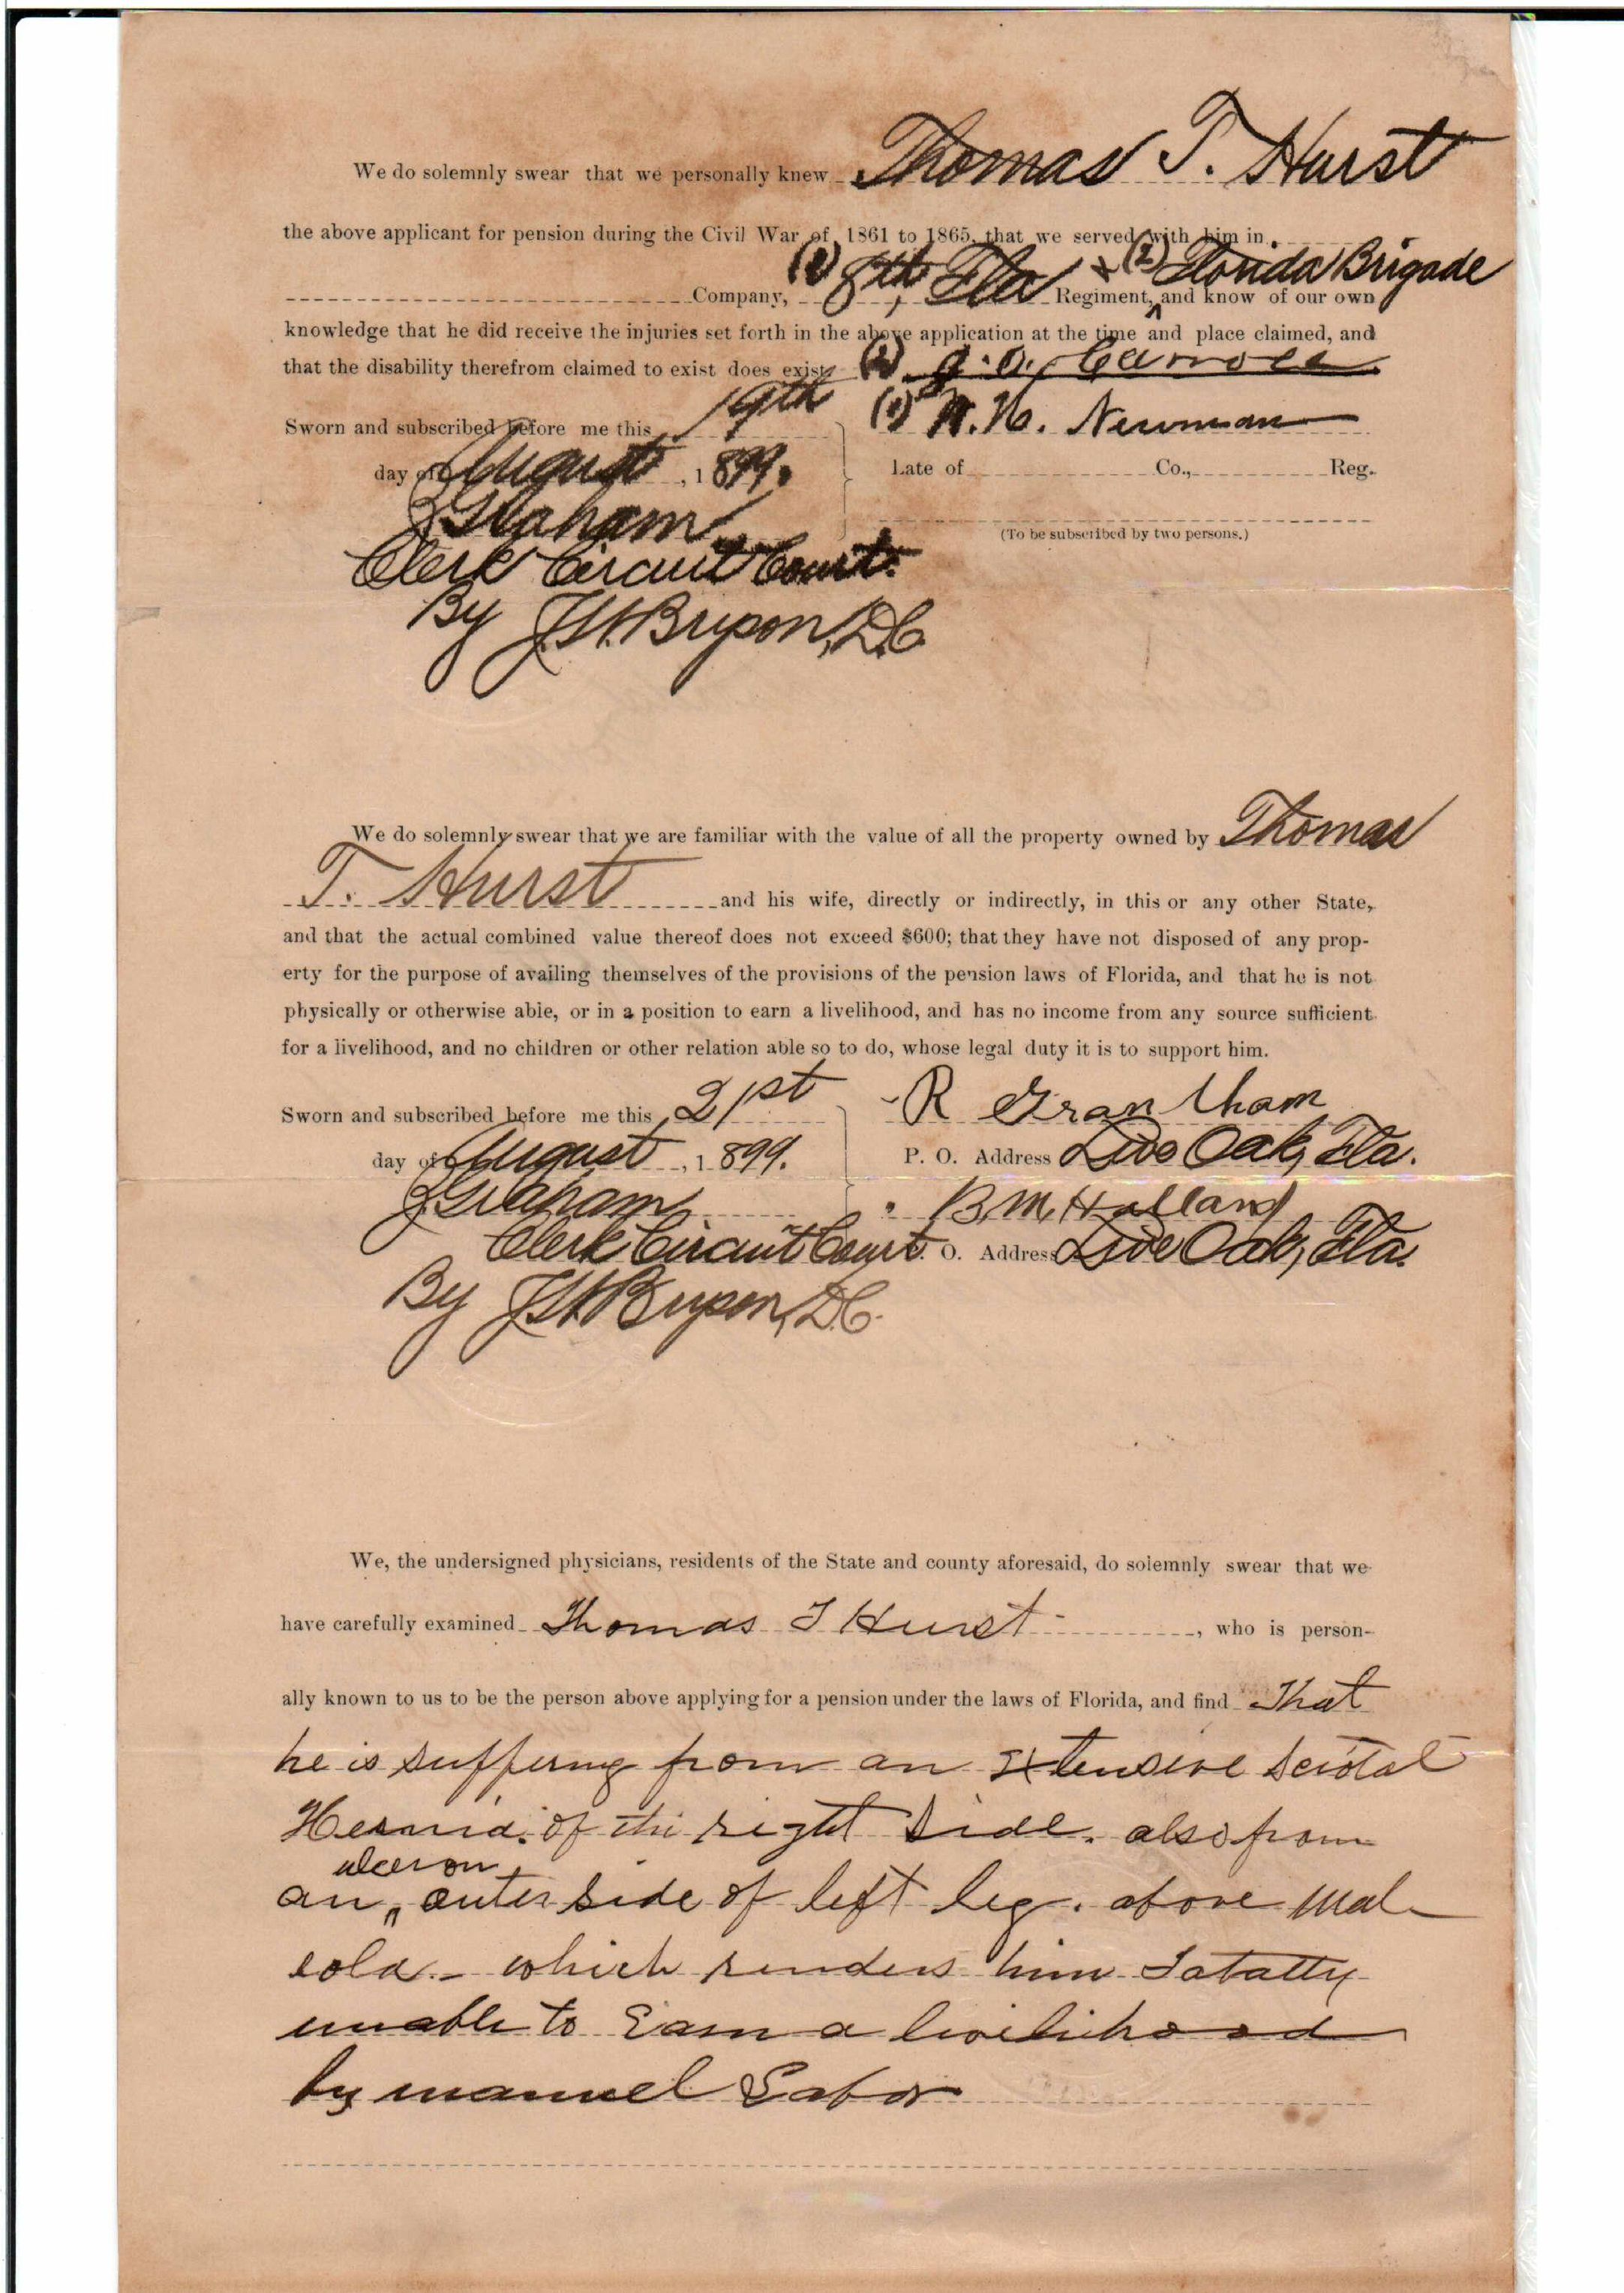 We do solemnly swear that we personally knew Thomas T. Hurst
the above applicant for pension during the Civil War of 1861 to 1865, that we served with him in
Company, (1) 8th, Fla Regiment, + (2) Florida Brigade and know of our own
knowledge that he did receive the injuries set forth in the above application at the time and place claimed, and
that the disability therefrom claimed to exist does exist (2) J. O. Carroll
Sworn and subscribed before me this 19th (1) W. H. Newman
day of August, 1899. Late of Co., Reg.
Graham
(To be subscribed by two persons.)
Clerk Circuit Court.
By Bryson, D.C.
We do solemnly swear that we are familiar with the value of all the property owned by Thomas
T. Hurst and his wife, directly or indirectly, in this or any other State,
and that the actual combined value thereof does not exceed $600; that they have not disposed of any prop-
erty for the purpose of availing themselves of the provisions of the pension laws of Florida, and that he is not
physically or otherwise able, or in a position to earn a livelihood, and has no income from any source sufficient
for a livelihood, and no children or other relation able so to do, whose legal duty it is to support him.
Sworn and subscribed before me this 21st R Grantham
day of August, 1899. P. O. Address Live Oak, Fla.
Graham B. M. Holland
Clerk Circuit Court. O. Address Live Oak, Fla.
By Bryson, D.C.
We, the undersigned physicians, residents of the State and county aforesaid, do solemnly swear that we
have carefully examined Thomas T Hurst, who is person-
ally known to us to be the person above applying for a pension under the laws of Florida, and find That
he is suffering from an extensive scrotal
Hernia. of the right side. also from
an ulcer on outer side of left leg. above mal-
eola. - which renders him Totally
unable to Earn a livelihood
by manuel Labor